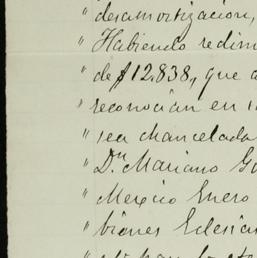 " desamortización,
" Habiendo redim
" de $12.838, que
" reconocían en
" sea chancelada
" Dn Mariano G
" Mexico Enero
" bienes Eclesiás